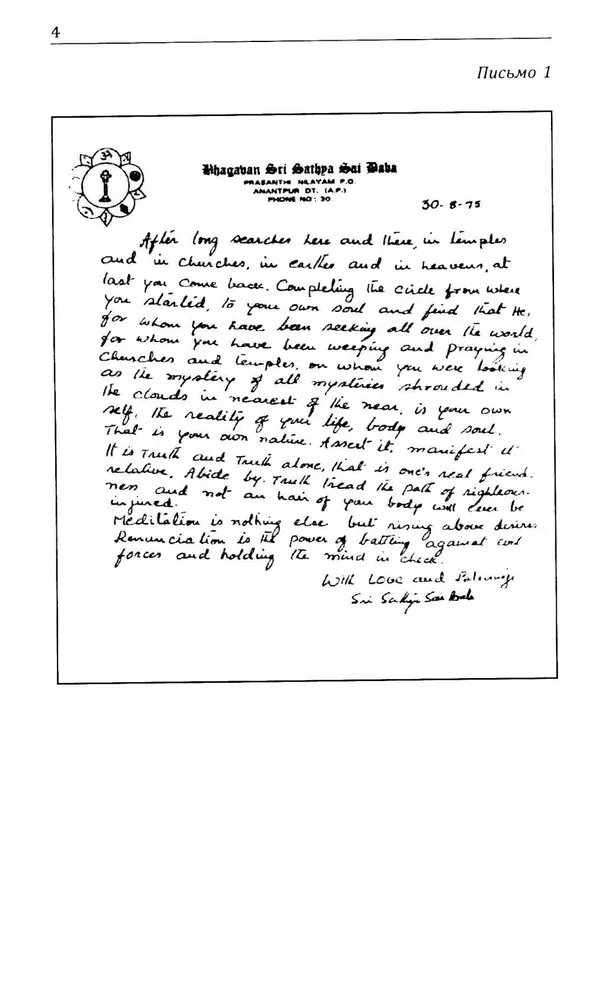 4
Письмо 1
Bhagavan Sri Sathya Sai Baba
PRASANTHI NILAYAM P.O.
ANANTPUR DT. (A.P.)
PHONE NO: 30
30-8-75
After long searches here and there, in temples
and in churches, in earths and in heavens, at
last you come back. Completing the circle from where
you started, to your own soul and find that He,
for whom you have been seeking all over the world,
for whom you have been weeping and praying in
churches and temples, on whom you were looking
as the mystery of all mysteries shrouded in
the clouds in nearest of the near, is your own
self, the reality of your life, body and soul.
That is your own nature. Assert it, manifest it
It is Truth and Truth alone, that is one's real friend,
relative. Abide by Truth tread the path of righteous-
ness and not an hair of your body will ever be
injured.
Meditation is nothing else but rising above desires.
Renunciation is the power of battling against evil
forces and holding the mind in check.
With Love and
Sri Sathya Sai Baba